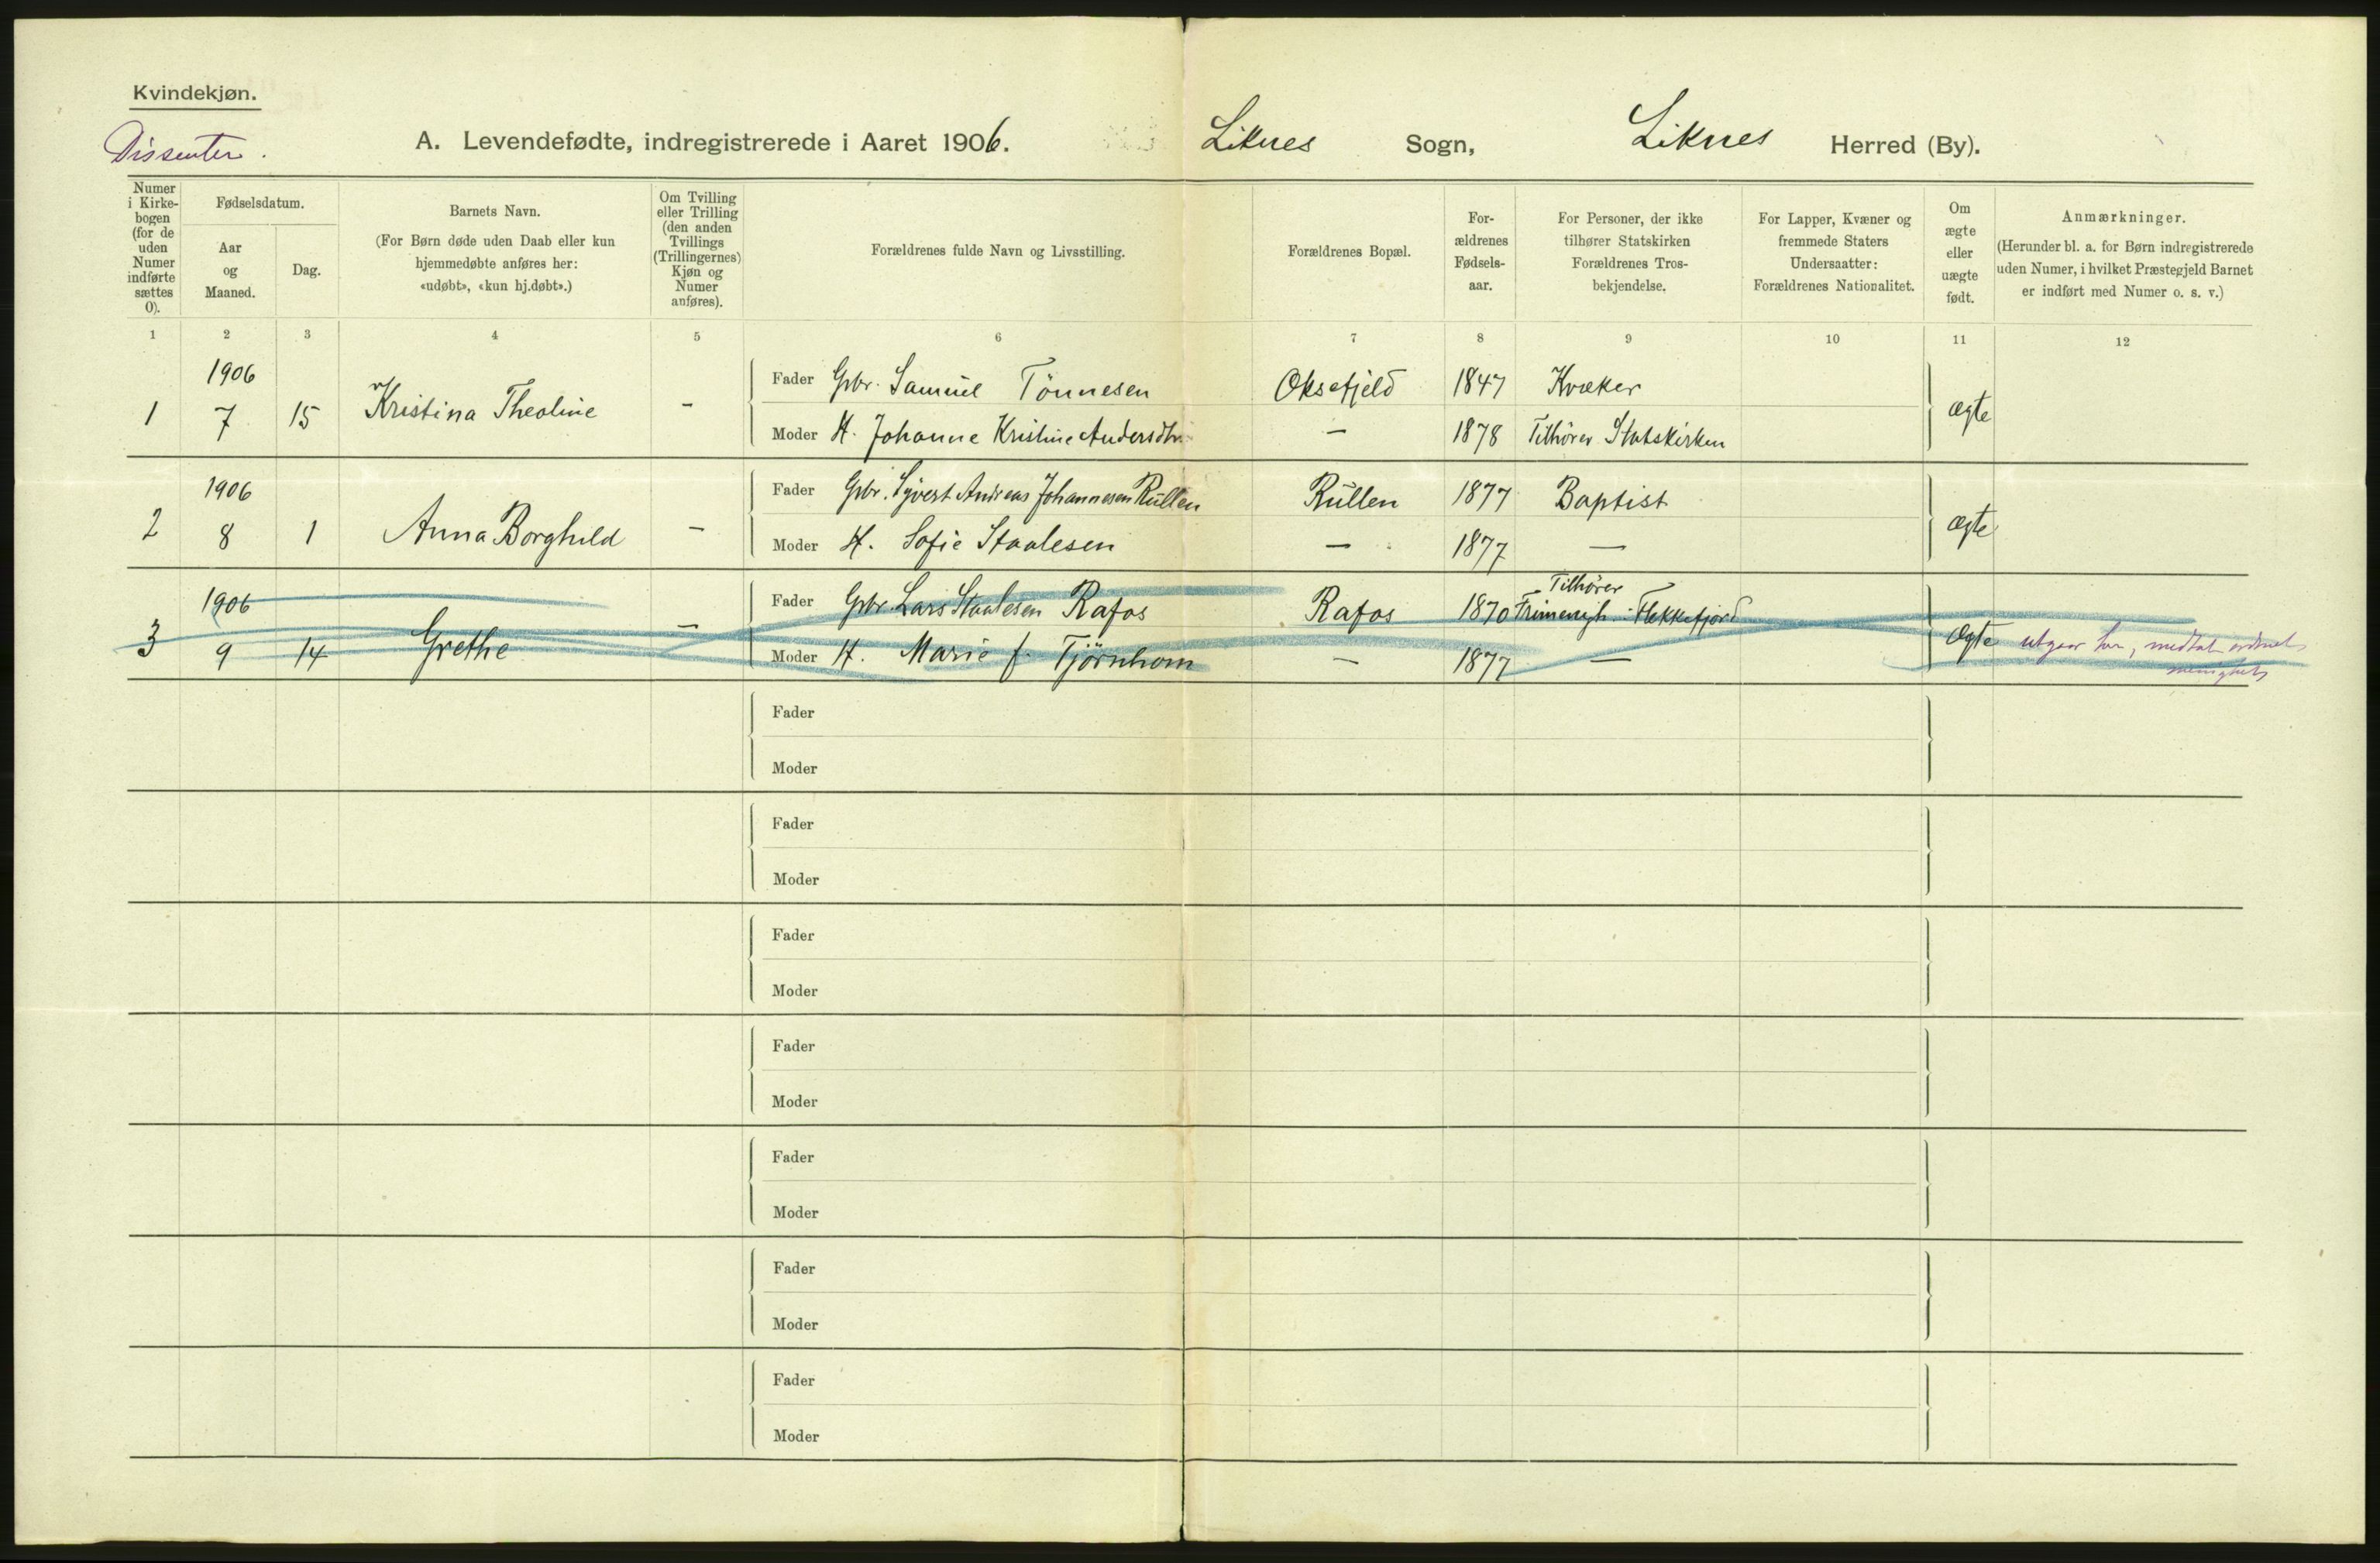 Kvindekjøn.
Dissenter.
A. Levendefødte, indregistrerede i Aaret 1906. Liknes Sogn, Liknes Herred (By).
Numer i Kirke-bogen (for de uden Numer indførte sættes 0).
Fødselsdatum.
Aar og Maaned.
Dag.
Barnets Navn.
(For Børn døde uden Daab eller kun hjemmedøbte anføres her: «udøbt», «kun hj.døbt».)
Om Tvilling eller Trilling (den anden Tvillings (Trillingernes) Kjøn og Numer anføres).
Forældrenes fulde Navn og Livsstilling.
Forældrenes Bopæl.
For-ældrenes Fødsels-aar.
For Personer, der ikke tilhører Statskirken Forældrenes Tros-bekjendelse.
For Lapper, Kvæner og fremmede Staters Undersaatter: Forældrenes Nationalitet.
Om ægte eller uægte født.
Anmærkninger.
(Herunder bl. a. for Børn indregistrerede uden Numer, i hvilket Præstegjeld Barnet er indført med Numer o. s. v.)
1 2 3 4 5 6 7 8 9 10 11 12
1 1906 7 15 Kristina Theoline - ægte
Fader Gbr. Samuel Tönnesen Oksefjeld 1847 Kvæker
Moder H. Johanne Kristine Andersdtr. — 1878 Tilhörer Statskirken
2 1906 8 1 Anna Borghild - ægte
Fader Gbr. Sigvert Andreas Johannesen Rullen Rullen 1877 Baptist
Moder H. Sofie Staalesen — 1877 —
3 1906 9 14 Grethe - Ægte
Fader Gbr. Lars Staalesen Rafos Rafos 1870 Tilhörer Frimenigh. Flekkefjord
Moder H. Marie f. Tjörnhom — 1877 —
utgaar her, medtat
menighets
Fader
Moder
Fader
Moder
Fader
Moder
Fader
Moder
Fader
Moder
Fader
Moder
Fader
Moder